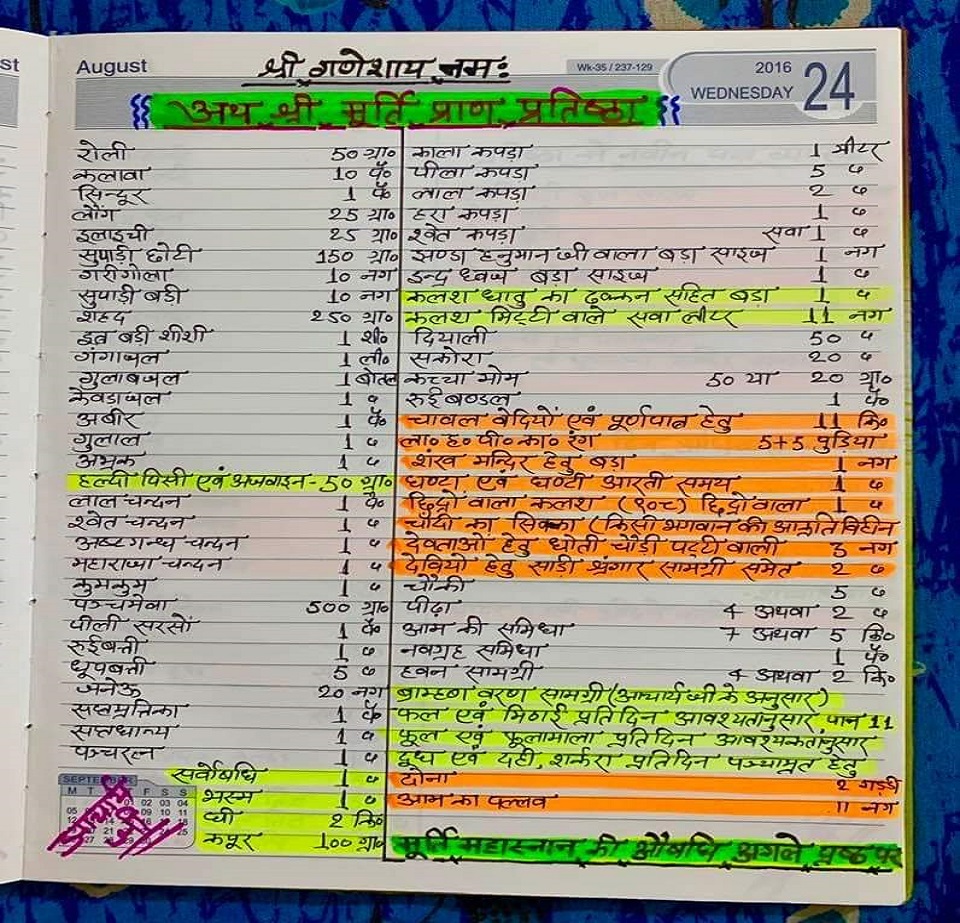 st
August
श्री गणेशाय नमः
Wk-35 / 237-129
2016
WEDNESDAY
24
अथ श्री मूर्ति प्राण प्रतिष्ठा
रोली 50 ग्रा०
कलावा 10 पै०
सिन्दूर 1 पै०
लौंग 25 ग्रा०
इलाइची 25 ग्रा०
सुपाड़ी छोटी 150 ग्रा०
गरीगोला 10 नग
सुपाड़ी बड़ी 10 नग
शहद 250 ग्रा०
इत्र बड़ी शीशी 1 शी०
गंगाजल 1 ली०
गुलाबजल 1 बोतल
केवड़ाजल 1 "
अबीर 1 पै०
गुलाल 1 "
अभ्रक 1 "
हल्दी पिसी एवं अजवाइन - 50 ग्रा०
लाल चन्दन 1 पै०
श्वेत चन्दन 1 "
अष्टगन्ध चन्दन 1 "
महाराजा चन्दन 1 "
कुमकुम 1 "
पञ्चमेवा 500 ग्रा०
पीली सरसों 1 पै०
रुईबत्ती 1 "
धूपबत्ती 5 "
जनेऊ 20 नग
सप्तमृतिका 1 पै०
सप्तधान्य 1 "
पञ्चरत्न 1 "
सर्वोषधि 1 "
भस्म 1 "
घी 2 कि०
कपूर 100 ग्रा०
काला कपड़ा 1 मीटर
पीला कपड़ा 5 "
लाल कपड़ा 2 "
हरा कपड़ा 1 "
श्वेत कपड़ा सवा 1 "
झण्डा हनुमान जी वाला बड़ा साइज 1 नग
इन्द्र ध्वज बड़ा साइज 1 "
कलश धातु का ढक्कन सहित बड़ा 1 "
कलश मिट्टी वाले सवा लीटर 11 नग
दियाली 50 "
सकोरा 20 "
कच्चा मोम 50 या 20 ग्रा०
रुई बण्डल 1 पै०
चावल वेदियों एवं पूर्णपात्र हेतु 11 कि०
ला० ह० पी० का० रंग 5+5 पुड़िया
शंख मन्दिर हेतु बड़ा 1 नग
घण्टा एवं घण्टी आरती समय 1 "
छिद्रों वाला कलश (१०८) छिद्रो वाला 1 "
चाँदी का सिक्का (किसी भगवान की आकृति विहीन
देवताओं हेतु धोती चौड़ी पट्टी वाली 3 नग
देवियो हेतु साड़ी श्रंगार सामग्री समेत 2 "
चौकी 5 "
पीढ़ा 4 अथवा 2 "
आम की समिधा 7 अथवा 5 कि०
नवग्रह समिधा 1 पै०
हवन सामग्री 4 अथवा 2 कि०
ब्राम्हण वरण सामग्री (आचार्य जी के अनुसार)
फल एवं मिठाई प्रतिदिन आवश्यतानुसार पान 11
फूल एवं फूलामाला प्रतिदिन आवश्यकतानुसार
दुध एवं दही, शर्करा प्रतिदिन पञ्चामृत हेतु
दोना 2 गड्डी
आम का पल्लव 11 नग
मूर्ति महास्नान की औषधि अगले प्रष्ठ पर
SEPTEMBER